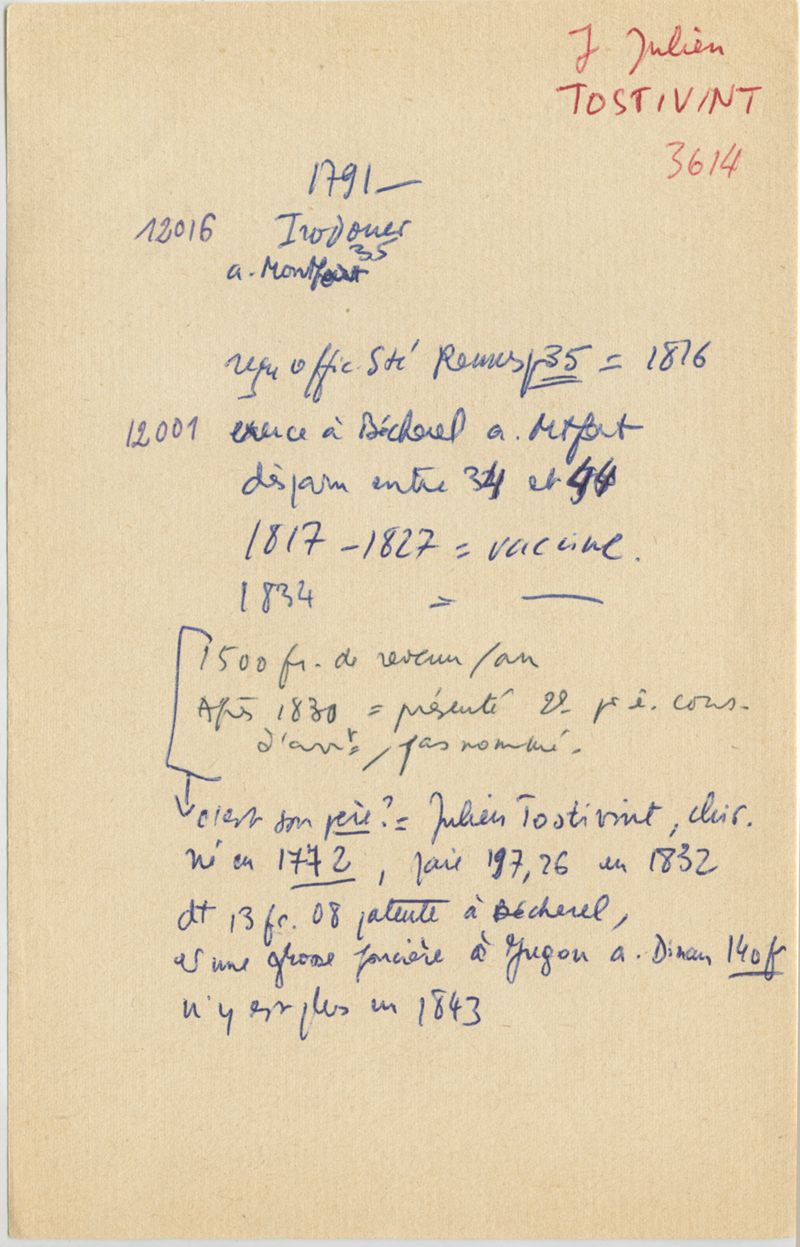 J Julien
TOSTIVINT
3614
1791 –
12016 Irodouer
a. Montfort 35
reçu offic. Sté Rennes 35 = 1816
12001 exerce à Bécherel a. Mtfort
disparu entre 34 et 44
1817 – 1827 = vaccine.
1834 = —
1500 fr. de revenu / an
Après 1830 = présenté 2e pr ê. cons.
d'arrt, pas nommé.
c'est son père? = Julien Tostivint, chir.
né en 1772, paie 197,26 en 1832
dt 13 fr. 08 patente à Bécherel,
et une grosse foncière à Jugon a. Dinan 140 f
n'y est plus en 1843